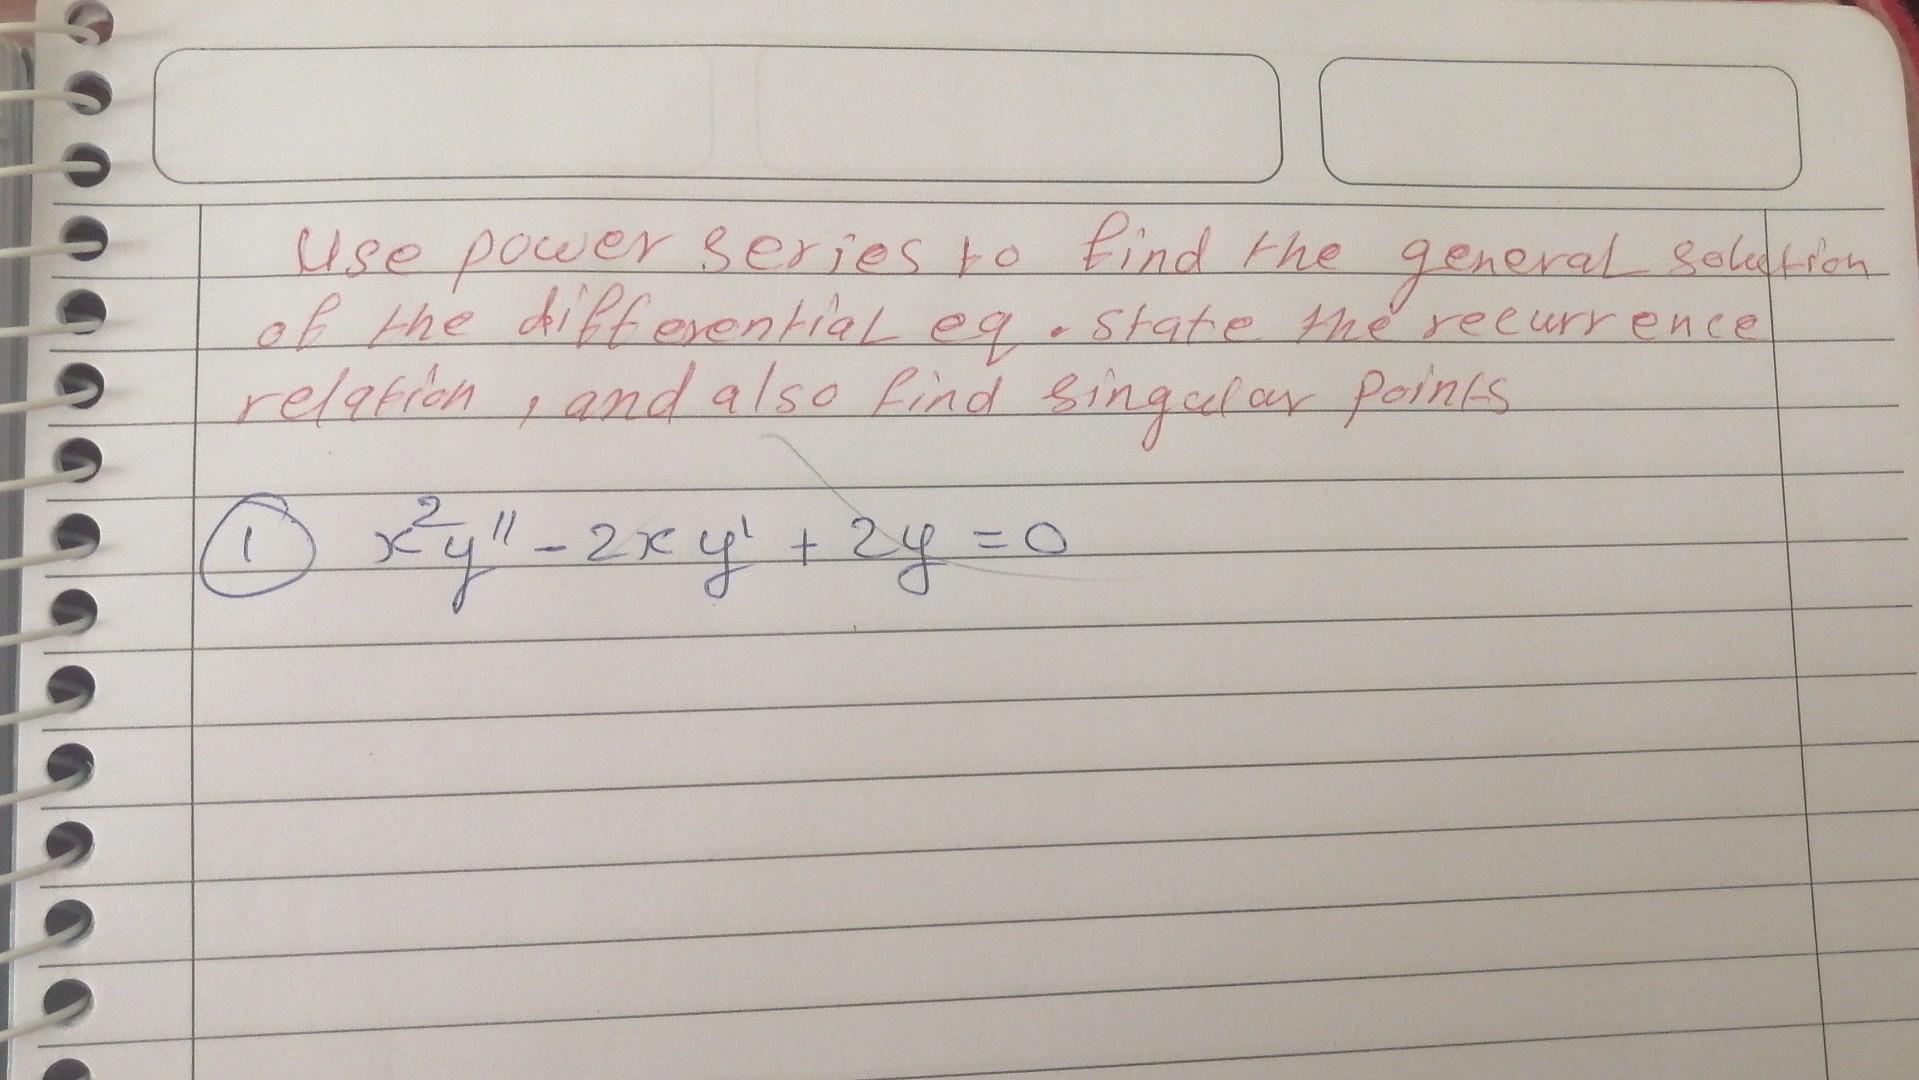 Use power series to find the general solution
of the differential eq. state the recurrence
relation, and also find singular points
① x²y'' - 2xy' + 2y = 0